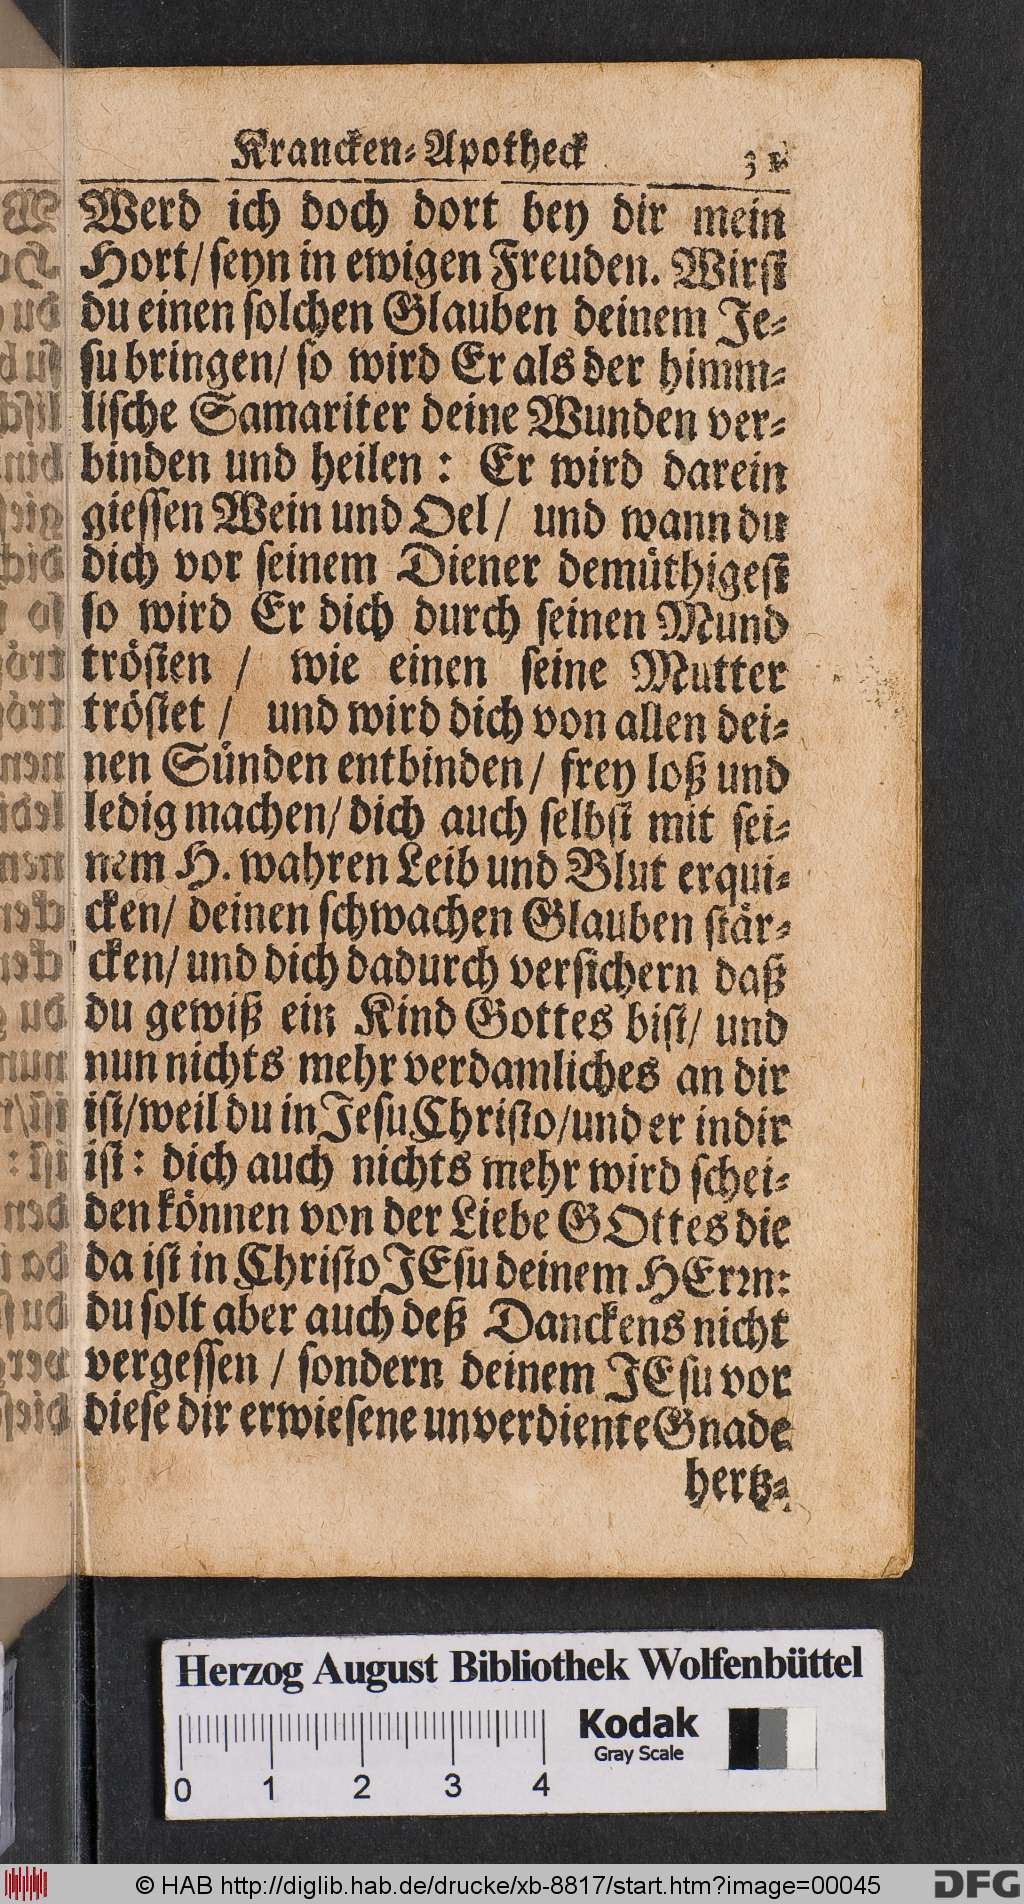 Krancken-Apotheck 31
Werd ich doch dort bey dir mein
Hort/ seyn in ewigen Freuden. Wirst
du einen solchen Glauben deinem Je-
su bringen/ so wird Er als der himm-
lische Samariter deine Wunden ver-
binden und heilen : Er wird darein
giessen Wein und Oel/ und wann du
dich vor seinem Diener demüthigest
so wird Er dich durch seinen Mund
trösten / wie einen seine Mutter
tröstet / und wird dich von allen dei-
nen Sünden entbinden/ frey loß und
ledig machen/ dich auch selbst mit sei-
nem H. wahren Leib und Blut erqui-
cken/ deinen schwachen Glauben stär-
cken/ und dich dadurch versichern daß
du gewiß ein Kind Gottes bist/ und
nun nichts mehr verdamliches an dir
ist/ weil du in Jesu Christo/ und er in dir
ist : dich auch nichts mehr wird schei-
den können von der Liebe GOttes die
da ist in Christo JEsu deinem HErrn:
du solt aber auch deß Danckens nicht
vergessen / sondern deinem JEsu vor
diese dir erwiesene unverdiente Gnade
hertz-
Herzog August Bibliothek Wolfenbüttel
Kodak
Gray Scale
0 1 2 3 4
© HAB http://diglib.hab.de/drucke/xb-8817/start.htm?image=00045
DFG